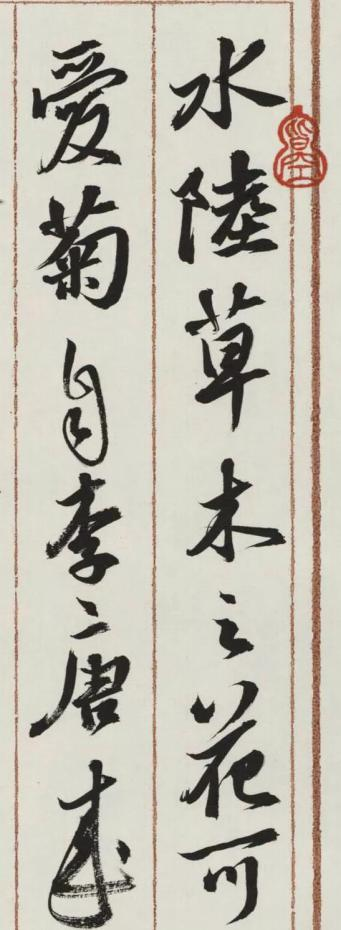 水陸草木之花可
愛菊自李唐来